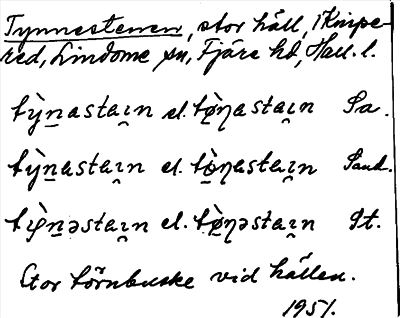 Tynnestenen, stor häll, i Knipe-
red, Lindome sn, Fjäre hd, Hall. l.
tỳn̲astaı̯n el. tø̲̀ŋastaı̯n Sa.
tỳn̲astaı̯n el. tø̲̀ŋastaı̯n Sand.
tỳn̲əstaı̯n el. tø̲̀ŋəstaı̯n St.
Stor törnbuske vid hällen.
1951.